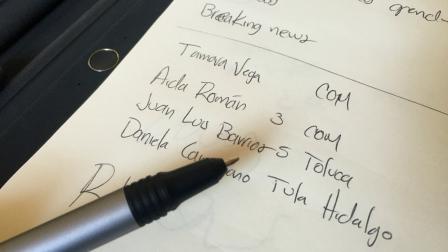 spend-
Breaking news
Tamara Vega COM
Aida Román 3 COM
Juan Luis Barrios 5 Toluca
Daniela Tula Hidalgo